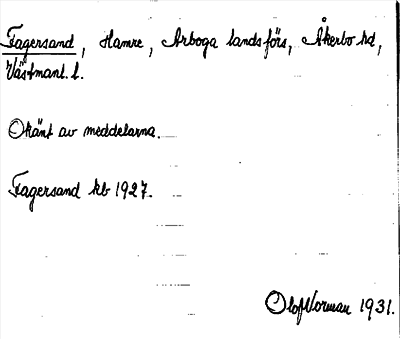 Fagersand, Hamre, Arboga landsförs, Åkerbo hd,
Västmanl. l.
Okänt av meddelarna.
Fagersand kb 1927.
Olof Norman 1931.